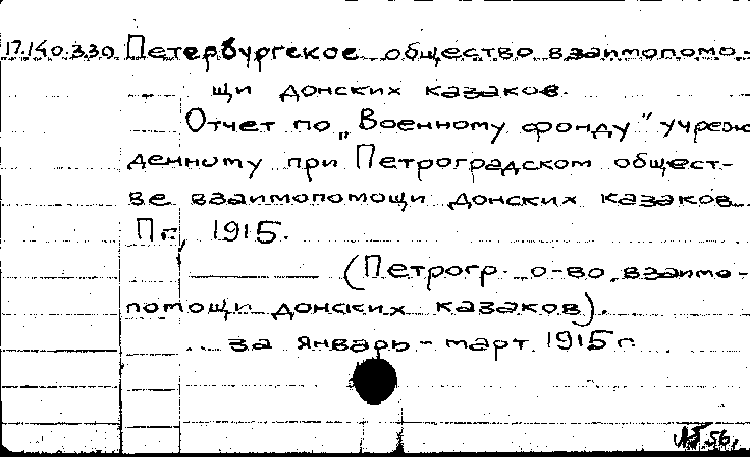 17.140.330 Петербургское общество взаимопомо-
щи донских казаков.
Отчет по „Военному фонду" учреж
денному при Петроградском общест-
ве взаимопомощи донских казаков.
Пг., 1915.
(Петрогр. о-во взаимо-
помощи донских казаков).
за январь-март 1915 г.
56.